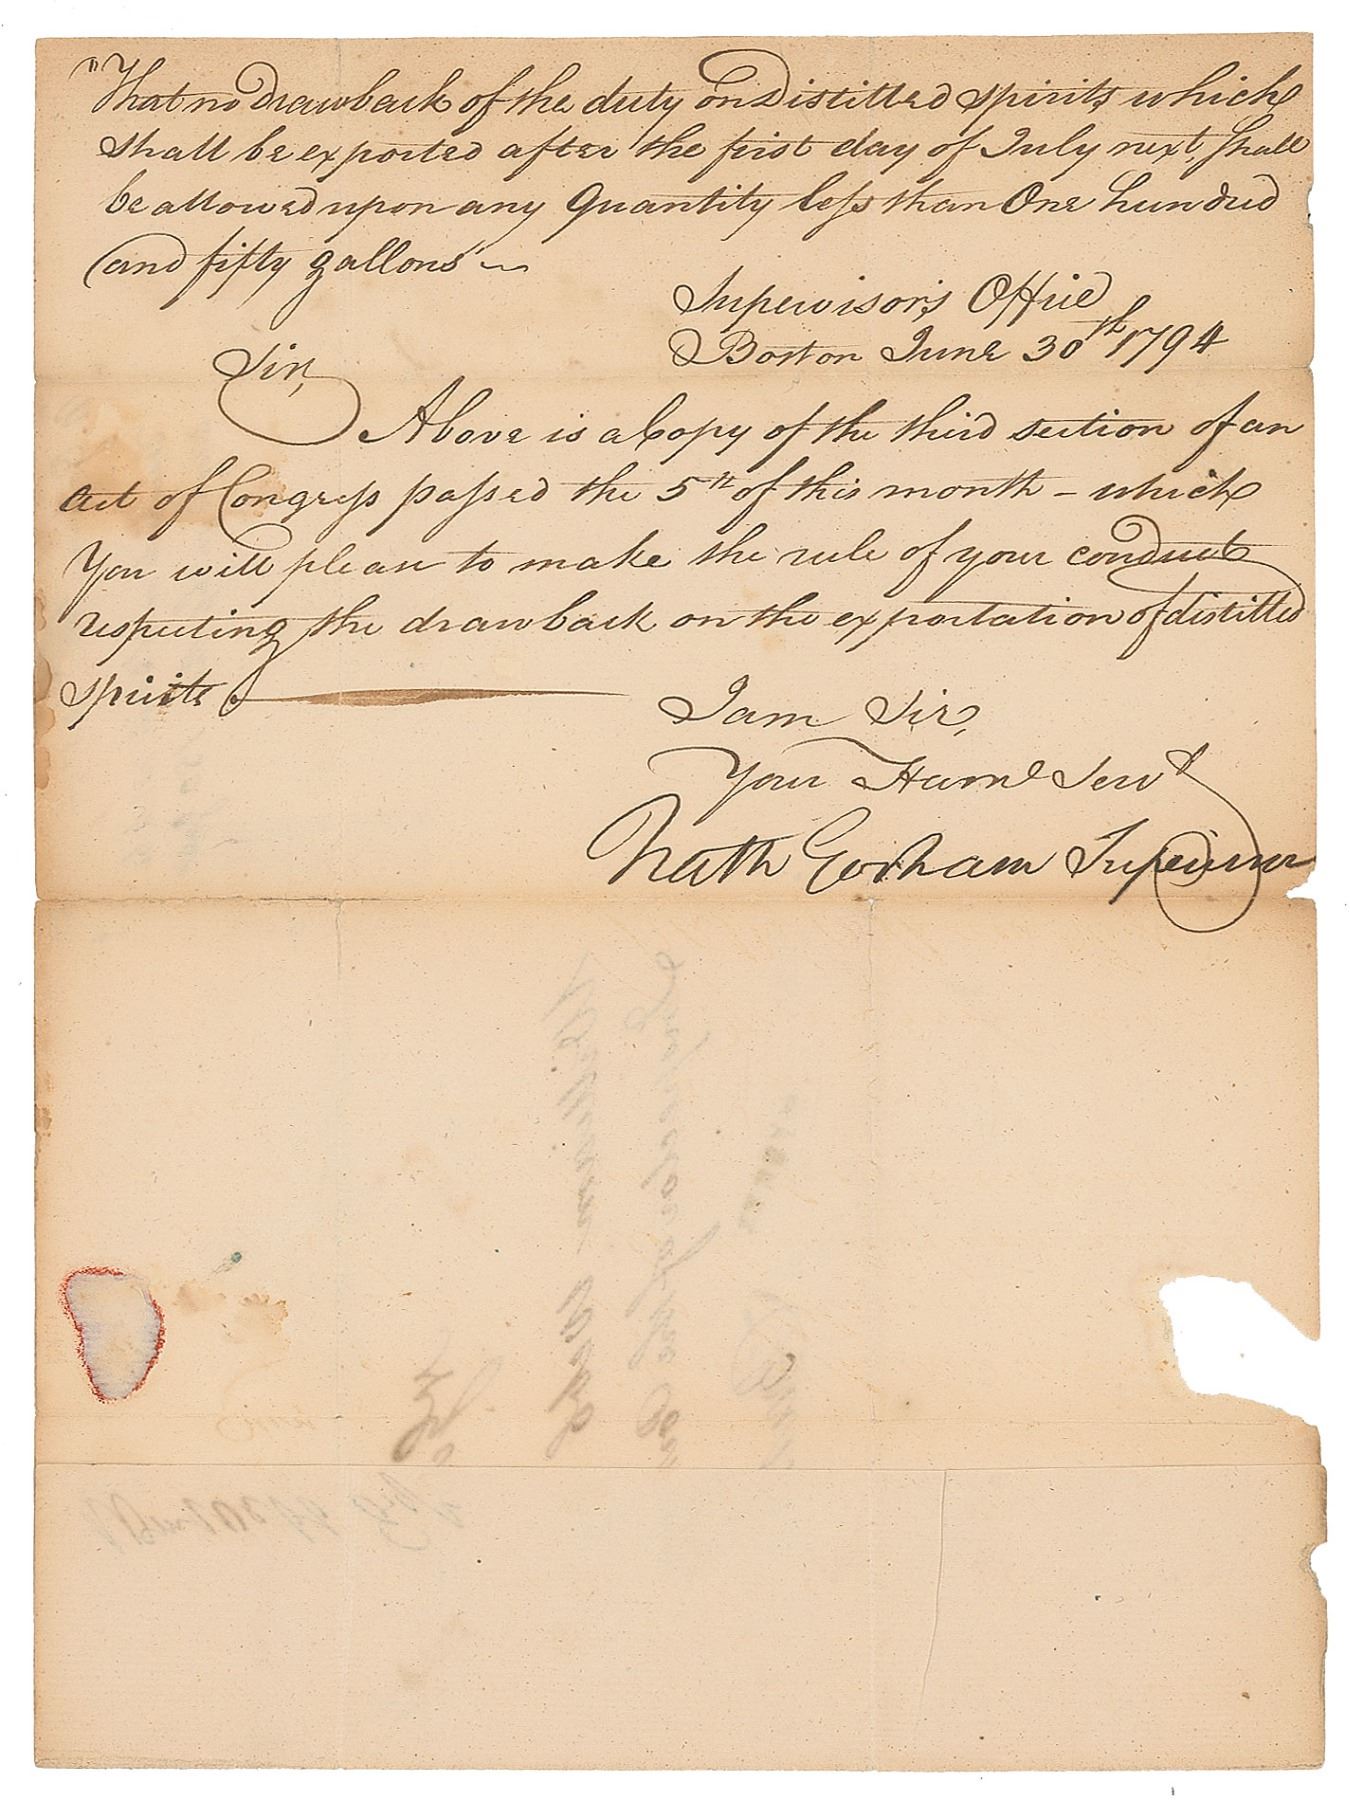 "That no drawback of the duty on Distilled spirits which
shall be exported after the first day of July next, shall
be allowed upon any Quantity less than One hundred
and fifty gallons"
Supervisor's Office
Boston June 30th 1794
Sir,
Above is a Copy of the third section of an
Act of Congress passed the 5th of this month – which
You will please to make the rule of your conduct
respecting the drawback on the exportation of distilled
spirits.
I am Sir,
Your Humle Servt
Nath Gorham Supervisor